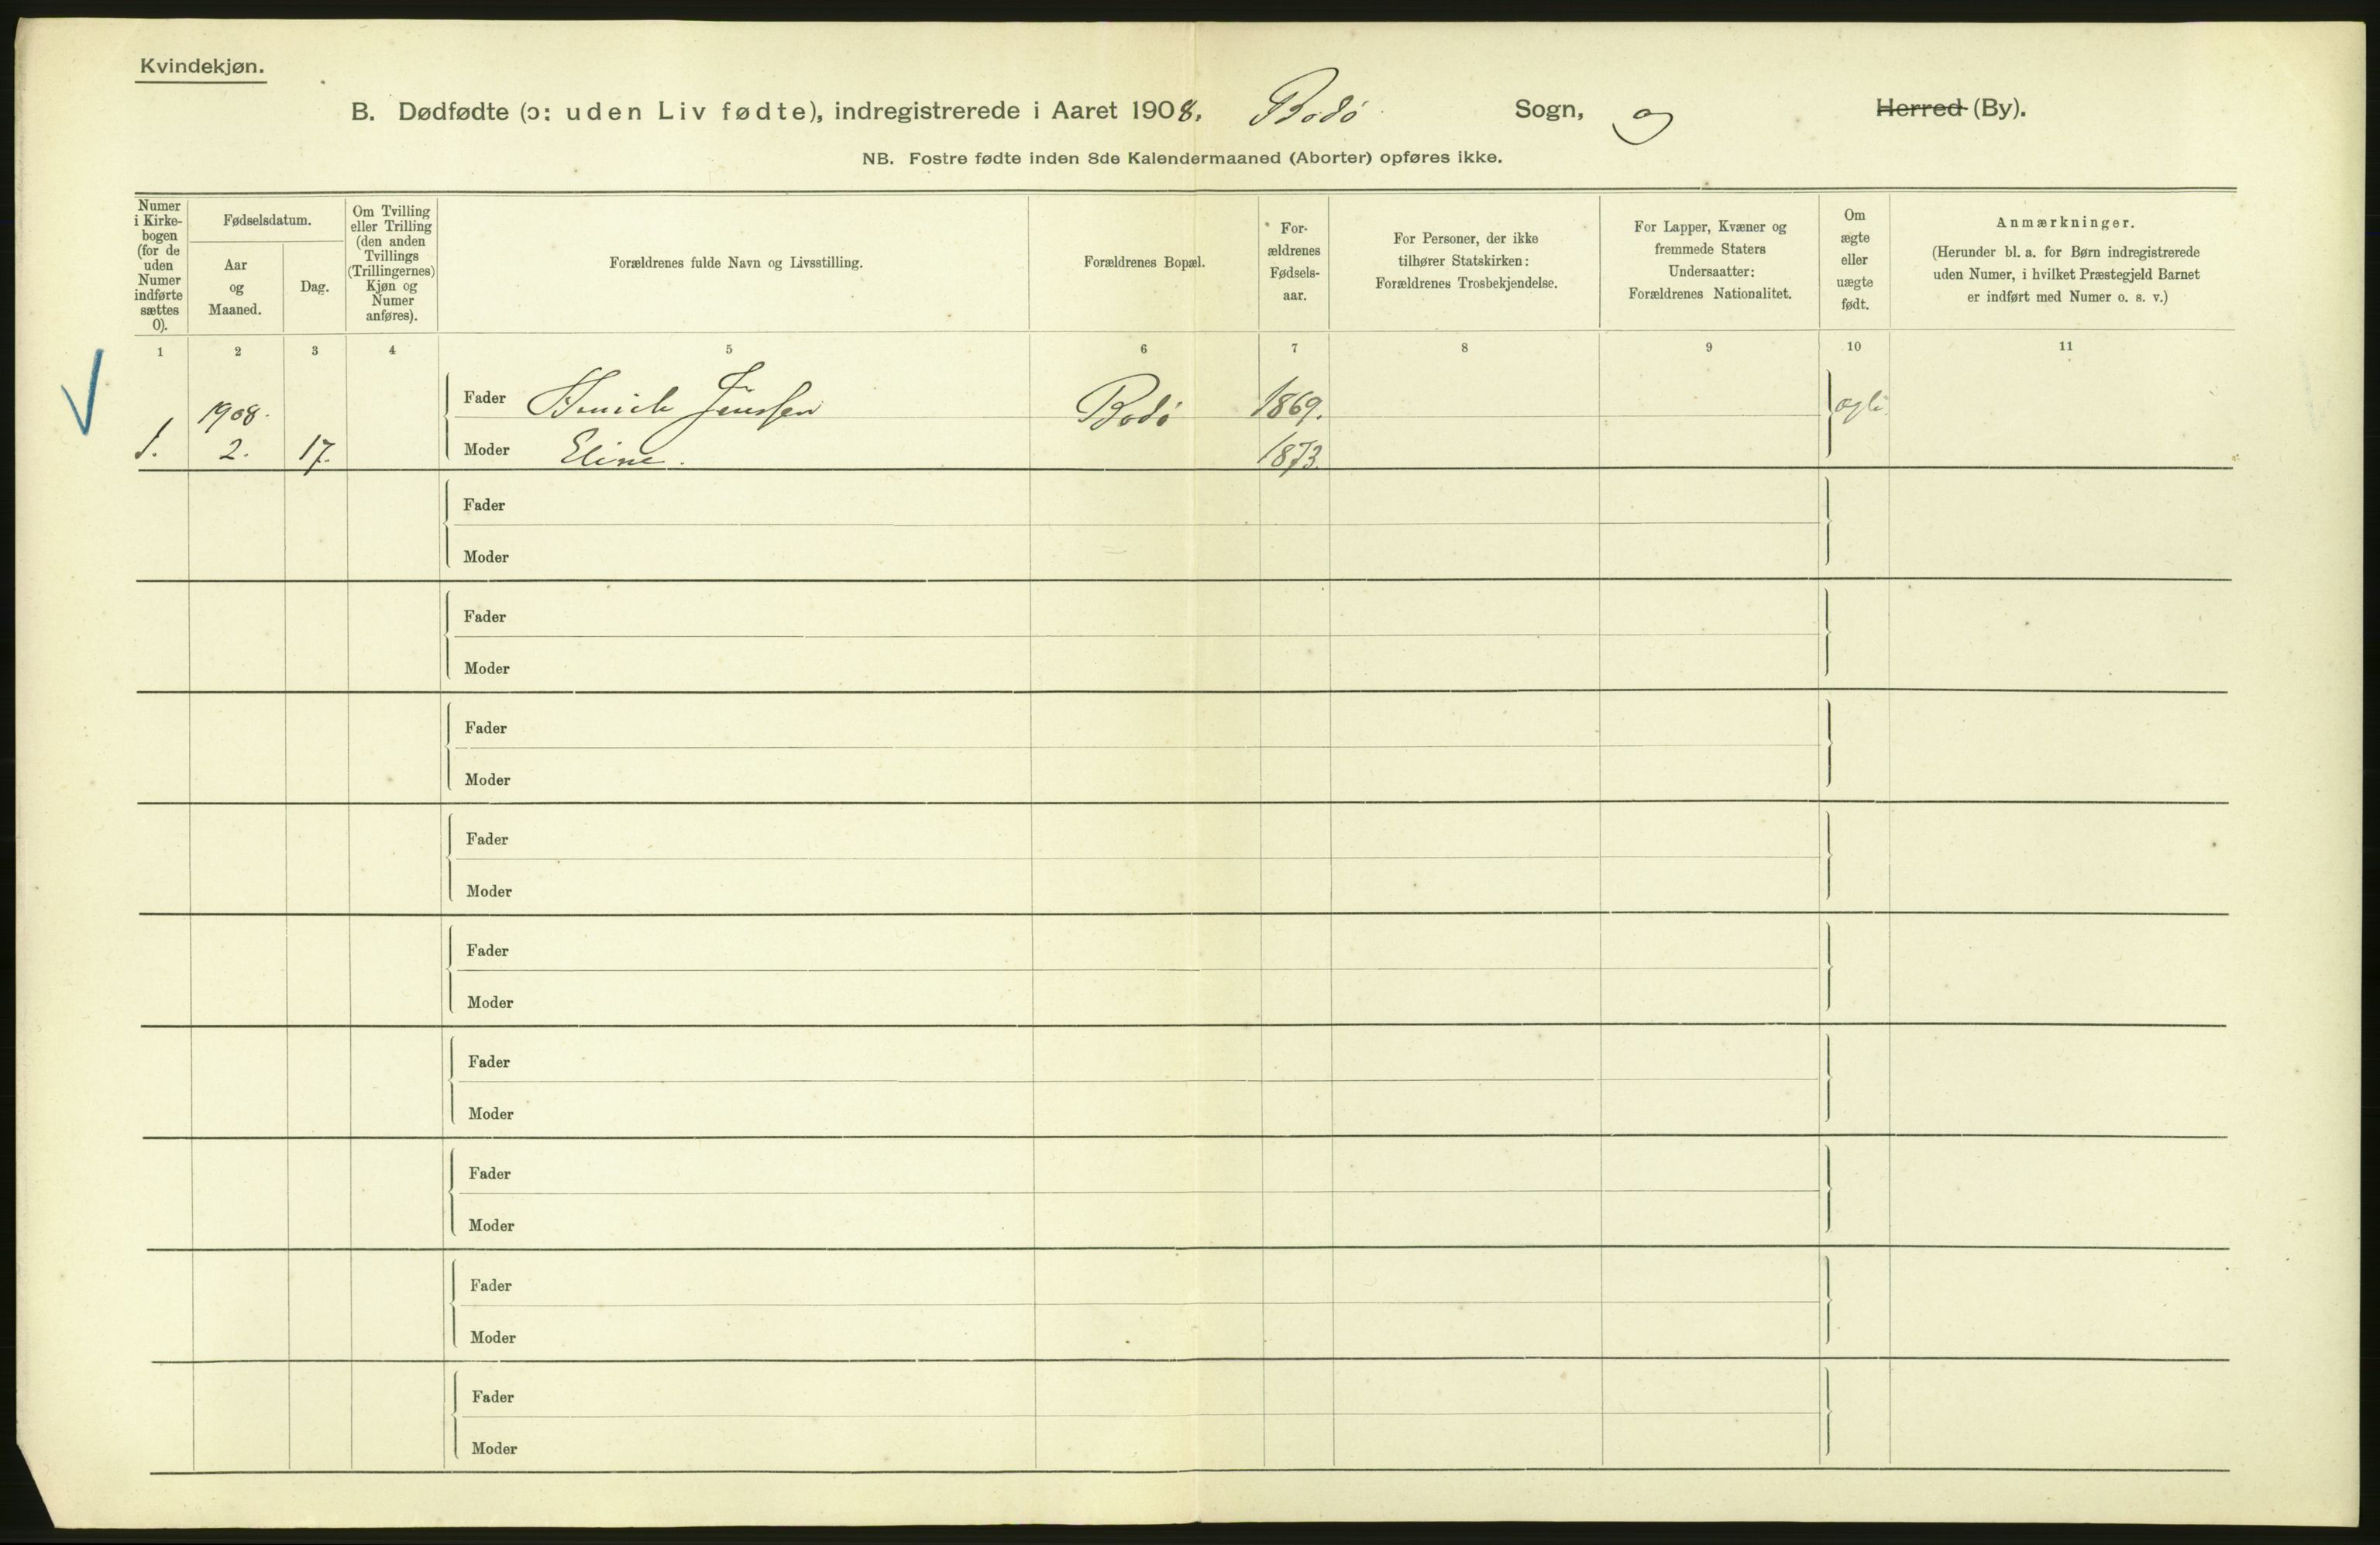 Kvindekjøn.
B. Dødfødte (ɔ: uden Liv fødte), indregistrerede i Aaret 1908, Bodö Sogn, og Herred (By).
NB. Fostre fødte inden 8de Kalendermaaned (Aborter) opføres ikke.
Numer
i Kirke-
bogen
(for de
uden
Numer
indførte
sættes
0).
Fødselsdatum.
Aar
og
Maaned.
Dag.
Om Tvilling
eller Trilling
(den anden
Tvillings
(Trillingernes)
Kjøn og
Numer
anføres).
Forældrenes fulde Navn og Livsstilling.
Forældrenes Bopæl.
For-
ældrenes
Fødsels-
aar.
For Personer, der ikke
tilhører Statskirken:
Forældrenes Trosbekjendelse.
For Lapper, Kvæner og
fremmede Staters
Undersaatter:
Forældrenes Nationalitet.
Om
ægte
eller
uægte
født.
Anmærkninger.
(Herunder bl. a. for Børn indregistrerede
uden Numer, i hvilket Præstegjeld Barnet
er indført med Numer o. s. v.)
1 2 3 4 5 6 7 8 9 10 11
1908. Fader Jenssen Bodö 1869.
1. 2. 17. Moder Eline. 1873.
Fader
Moder
Fader
Moder
Fader
Moder
Fader
Moder
Fader
Moder
Fader
Moder
Fader
Moder
Fader
Moder
Fader
Moder